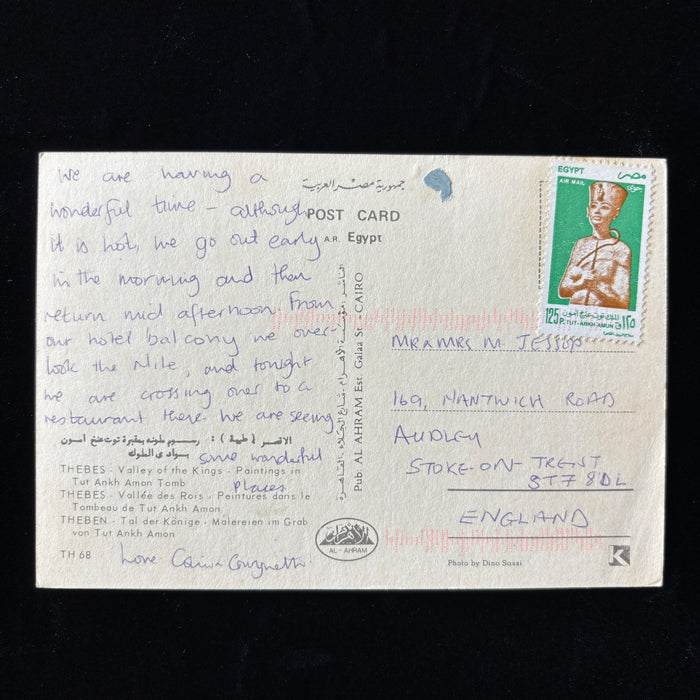 We are having a
wonderful time - although
it is hot, we go out early
in the morning and then
return mid afternoon. From
our hotel balcony we over-
look the Nile, and tonight
we are crossing over to a
restaurant there. We are seeing
some wonderful
places
Love
جمهورية مصر العربية
POST CARD
A.R. Egypt
الاقصر (طيبة) : رسوم ملونه بمقبرة توت عنخ آمون
بوادى الملوك
THEBES - Valley of the Kings - Paintings in
Tut Ankh Amon Tomb
THEBES - Vallée des Rois - Peintures dans le
Tombeau de Tut Ankh Amon
THEBEN - Tal der Könige - Malereien im Grab
von Tut Ankh Amon
TH 68
الناشر : مؤسسة الأهرام - شارع الجلاء - القاهرة
Pub. AL AHRAM Est. Galaa St. - CAIRO
الأهرام
AL - AHRAM
EGYPT
مصر
AIR MAIL
جوى
توت عنخ آمون
125 P. TUT-ANKH AMUN ١٢٥
MR & MRS M. JESSUP
169, NANTWICH ROAD
AUDLEY
STOKE-ON-TRENT
ST7 8DL
ENGLAND
Photo by Dino Sassi
K